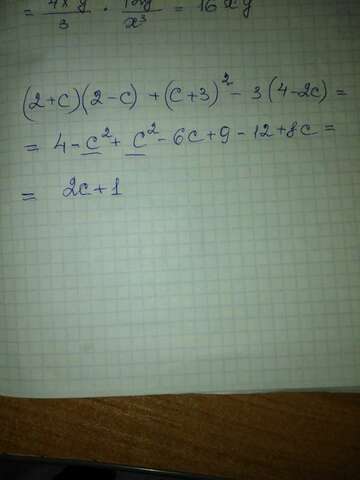 = 4x y / 3 · / x³ = 16xy
(2+c)(2-c) + (c+3)² - 3(4-2c) =
= 4 - c² + c² - 6c + 9 - 12 + 8c =
= 2c + 1